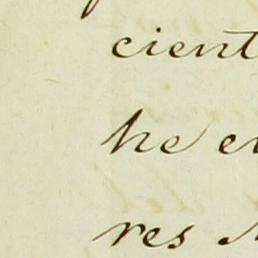 cient
he e
res